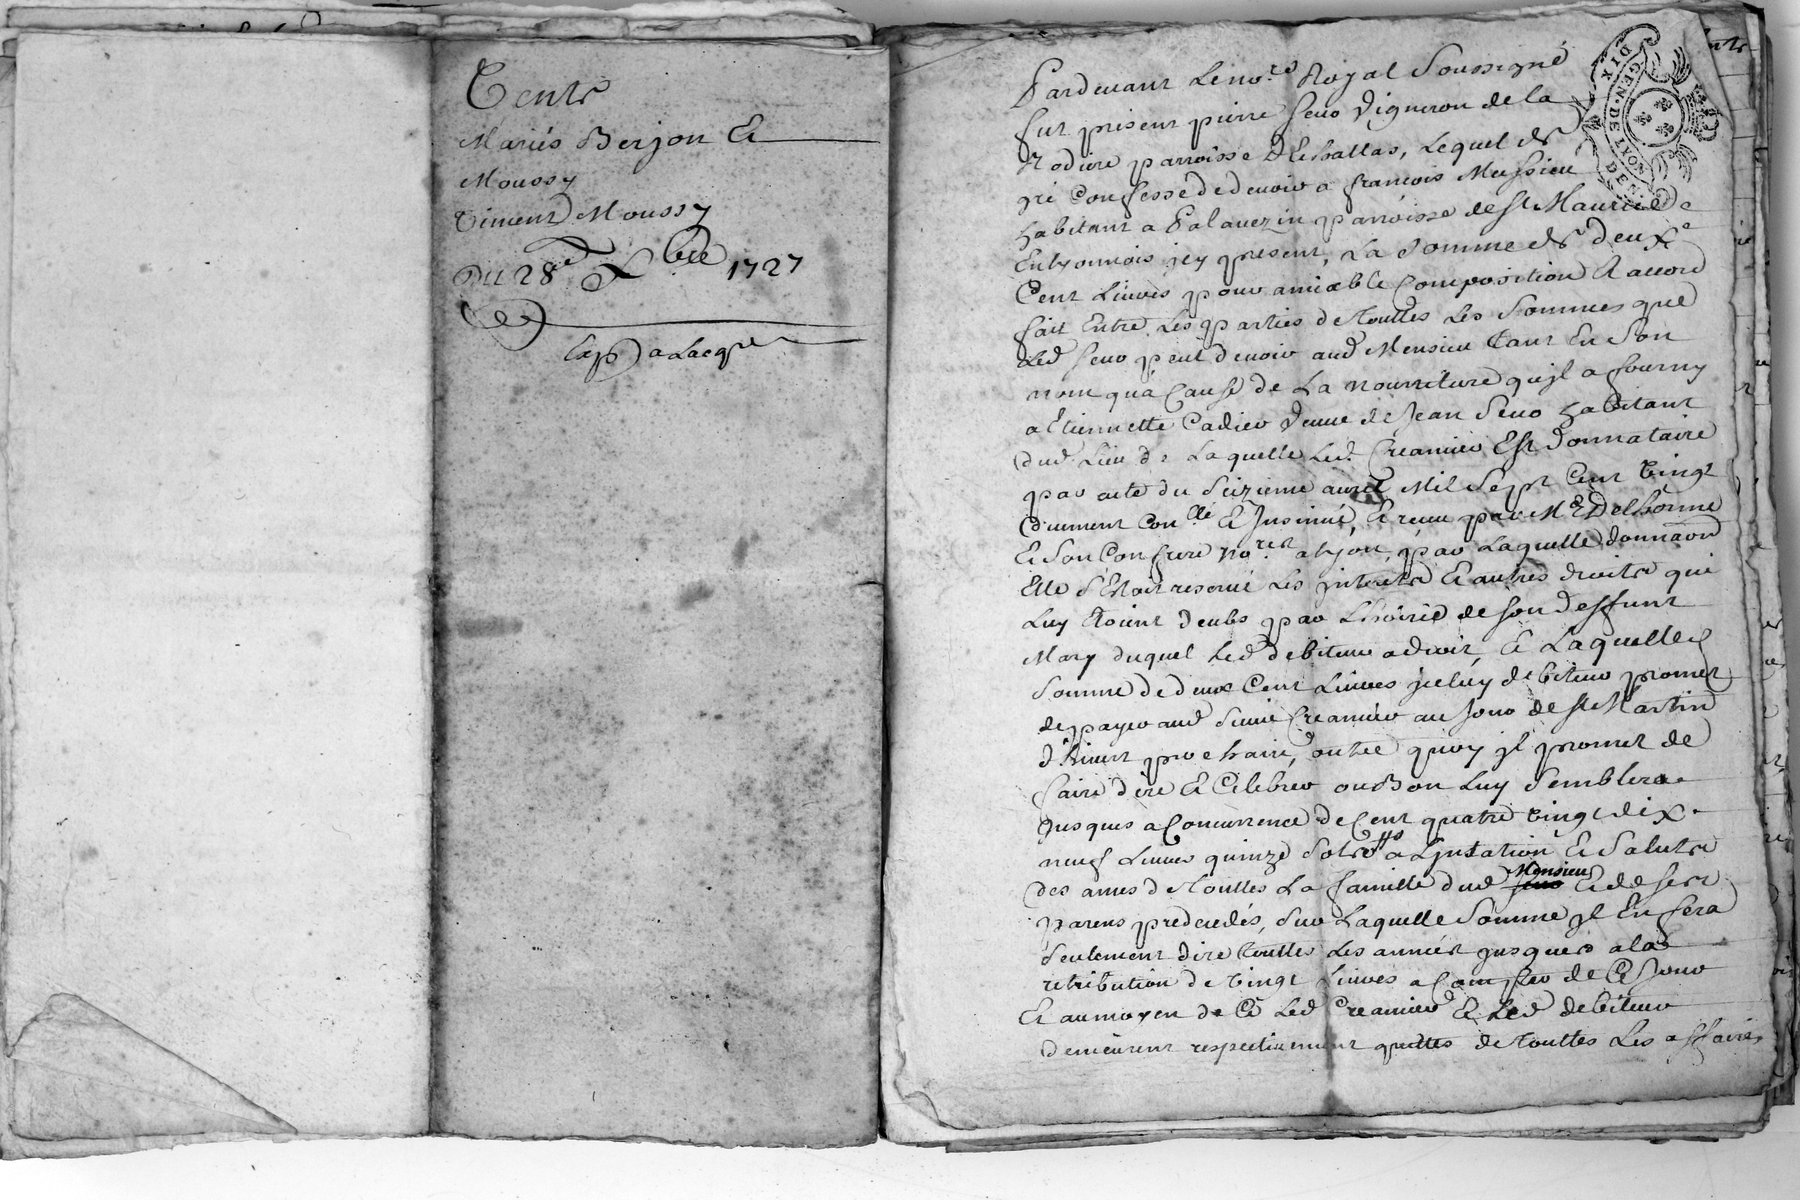 Vente
Mariés Berjon Et
Moussy
Viment Moussy
Du 28e Xbre 1727
Exp a Lacqr
DIX DEN
GEN. DE NOAT
Pardevant Le nore Royal Soussigné
fut present pierre seuo Vigneron de la
Rodiere parroisse D'Echallas, Lequel de
gré Confesse de devoir a françois Messieu
habitant a Palavezin parroisse de St Maurice
En lyonnois jcy present, La Somme de deux
Cent Livres pour amiable Composition Et accord
fait Entre Les parties de touttes Les Sommes que
Led seuo peut devoir aud Mensieu tant En Son
nom qu'a Cause de La nourriture qu'jl a fourny
a Etiennette Cadier Veuve de Jean seuo habitant
dud. Lieu de Laquelle Led. Creancier Est donnataire
par acte du Seizieme avril Mil Sept Cent Vingt
duement Conllé Et Jnsinué, Et receu par Me Delhorme
Et Son Confrere nores a Lyon, par Laquelle donnaon
Elle S'Etoit reservé Les jnterets Et autres droits qui
Luy Etoient deubs par L'hoirie de Son deffunt
Mary duquel Led debiteur a droit, Et Laquelle
Somme de deux Cent Livres jceluy debiteur promet
de payer aud Sieur Creancier au Jour de St Martin
d'hiver prochain, outre quoy jl promet de
faire dire Et Celebrer ou Bon Luy Semblera
Jusques a Concurrence de Cent quatre Vingt dix
neuf Livres quinze Sols a L'jntation Et Salut
des ames de touttes La famille dud Mensieu Et de ses
parens predecedés, Sur Laquelle Somme jl En fera
Seulement dire touttes Les années jusques a la
retribution de Vingt Livres a Compter de Ce Jour
Et au moyen de Ce Led Creancier Et Led debiteur
demeurent respectivement quittes de touttes Les affaires